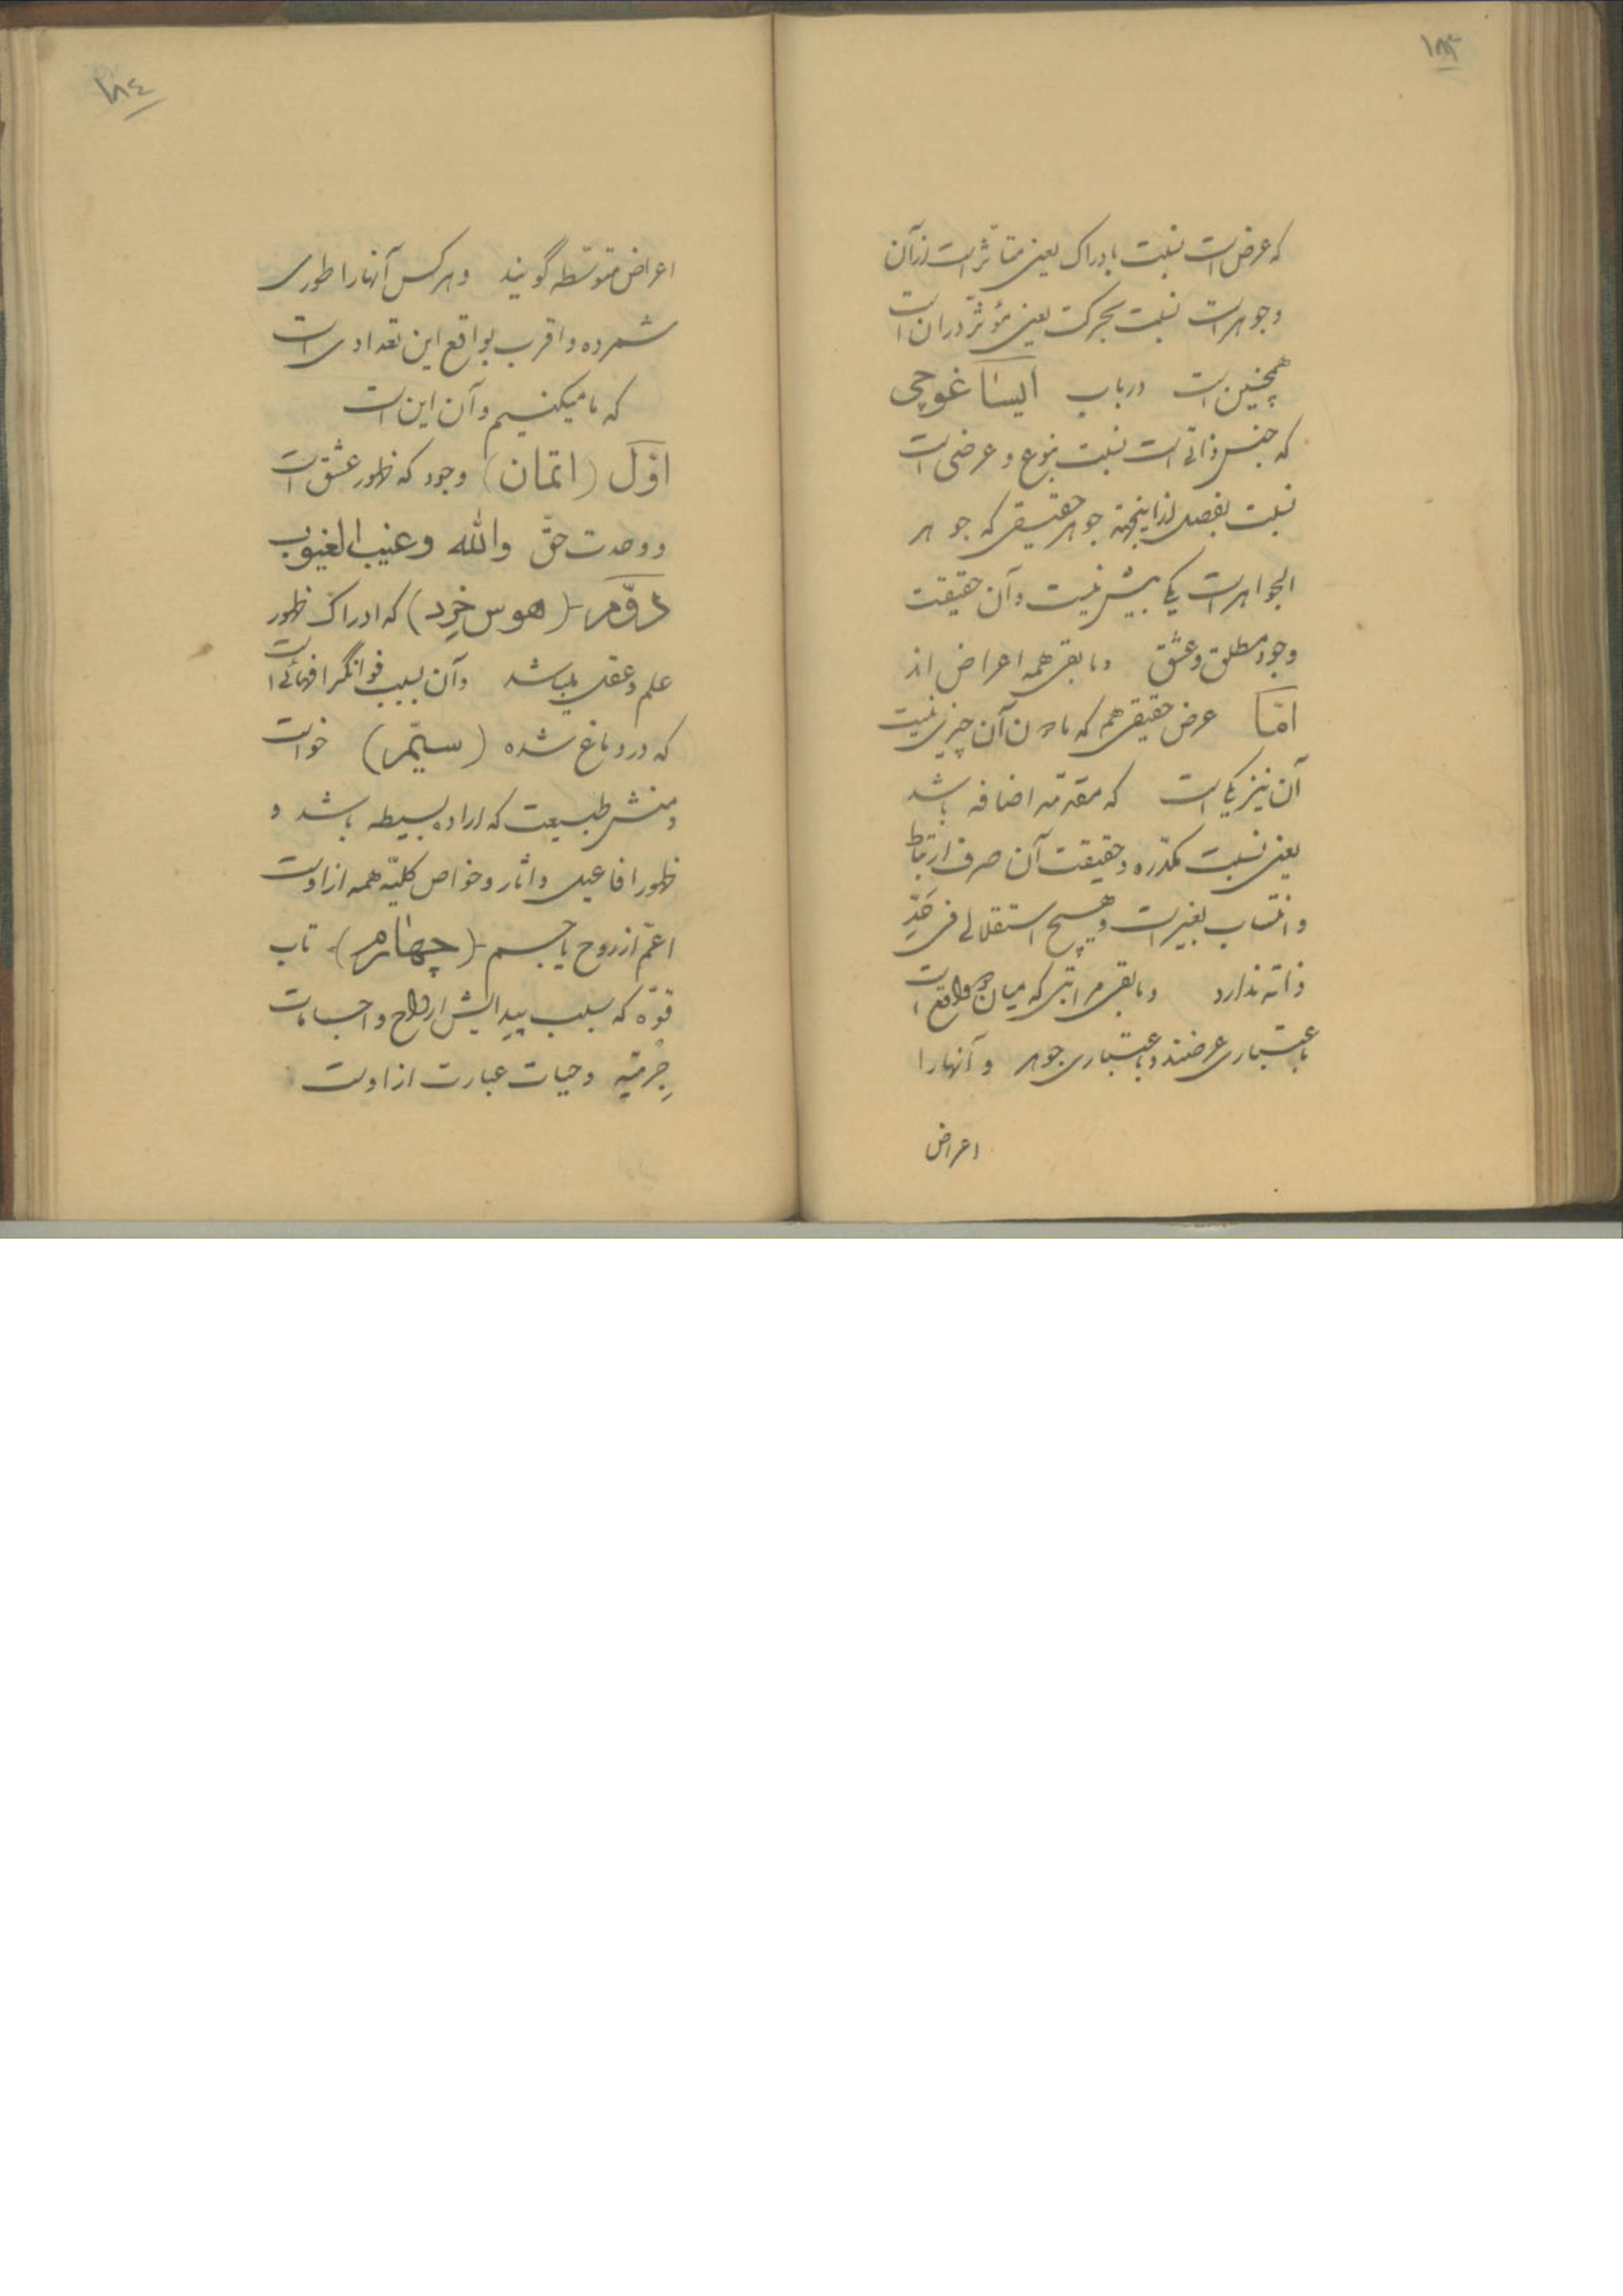 ۱۸۳
که عرض است نسبت بادراک یعنی متأثر است از آن
و جوهر است نسبت بحرکت یعنی مؤثر در ان است
همچنین است در باب ایساغوجی
که جنس ذاتی است نسبت بنوع و عرضی است
نسبت بفصل از اینجهة جوهر حقیقی که جوهر
الجواهر است یکی بیش نیست و آن حقیقت
وجود مطلق و عشق و مابقی همه اعراض اند
امّا عرض حقیقی هم که مادون آن چیزی نیست
آن نیز یکی است که مقدمه اضافه باشد
یعنی نسبت مکدّره و حقیقت آن صرف ارتباط
و انتساب بغیر است و هیچ استقلالی فی حَدِّ
ذاته ندارد و مابقی مراتبی که میان واقع است
باعتباری عرضند و باعتباری جوهر و آنها را
اعراض
۱۸٤
اعراض متوسّطه گویند و هر کس آنها را طوری
شمرده و اقرب بواقع این تعدادی است
که ما میکنیم و آن این است
اوّل (اتمان) وجود که ظهور عشق است
و وحدت حقّ والله و غیب الغیوب
دوّم (هوس خِرد) که ادراک ظهور
علم و عقل میباشد و آن بسبب
که در دماغ شده (سیّم) خواست
و منش طبیعت که اراده بسیطه باشد و
ظهور افاعیل و اثار و خواص کلیّه همه از اوست
اعمّ از روح یا جسم (چهارم) تاب
قوّه که سبب پیدایش ارواح و اجسامات
جِرْمیّه و حیات عبارت از اوست